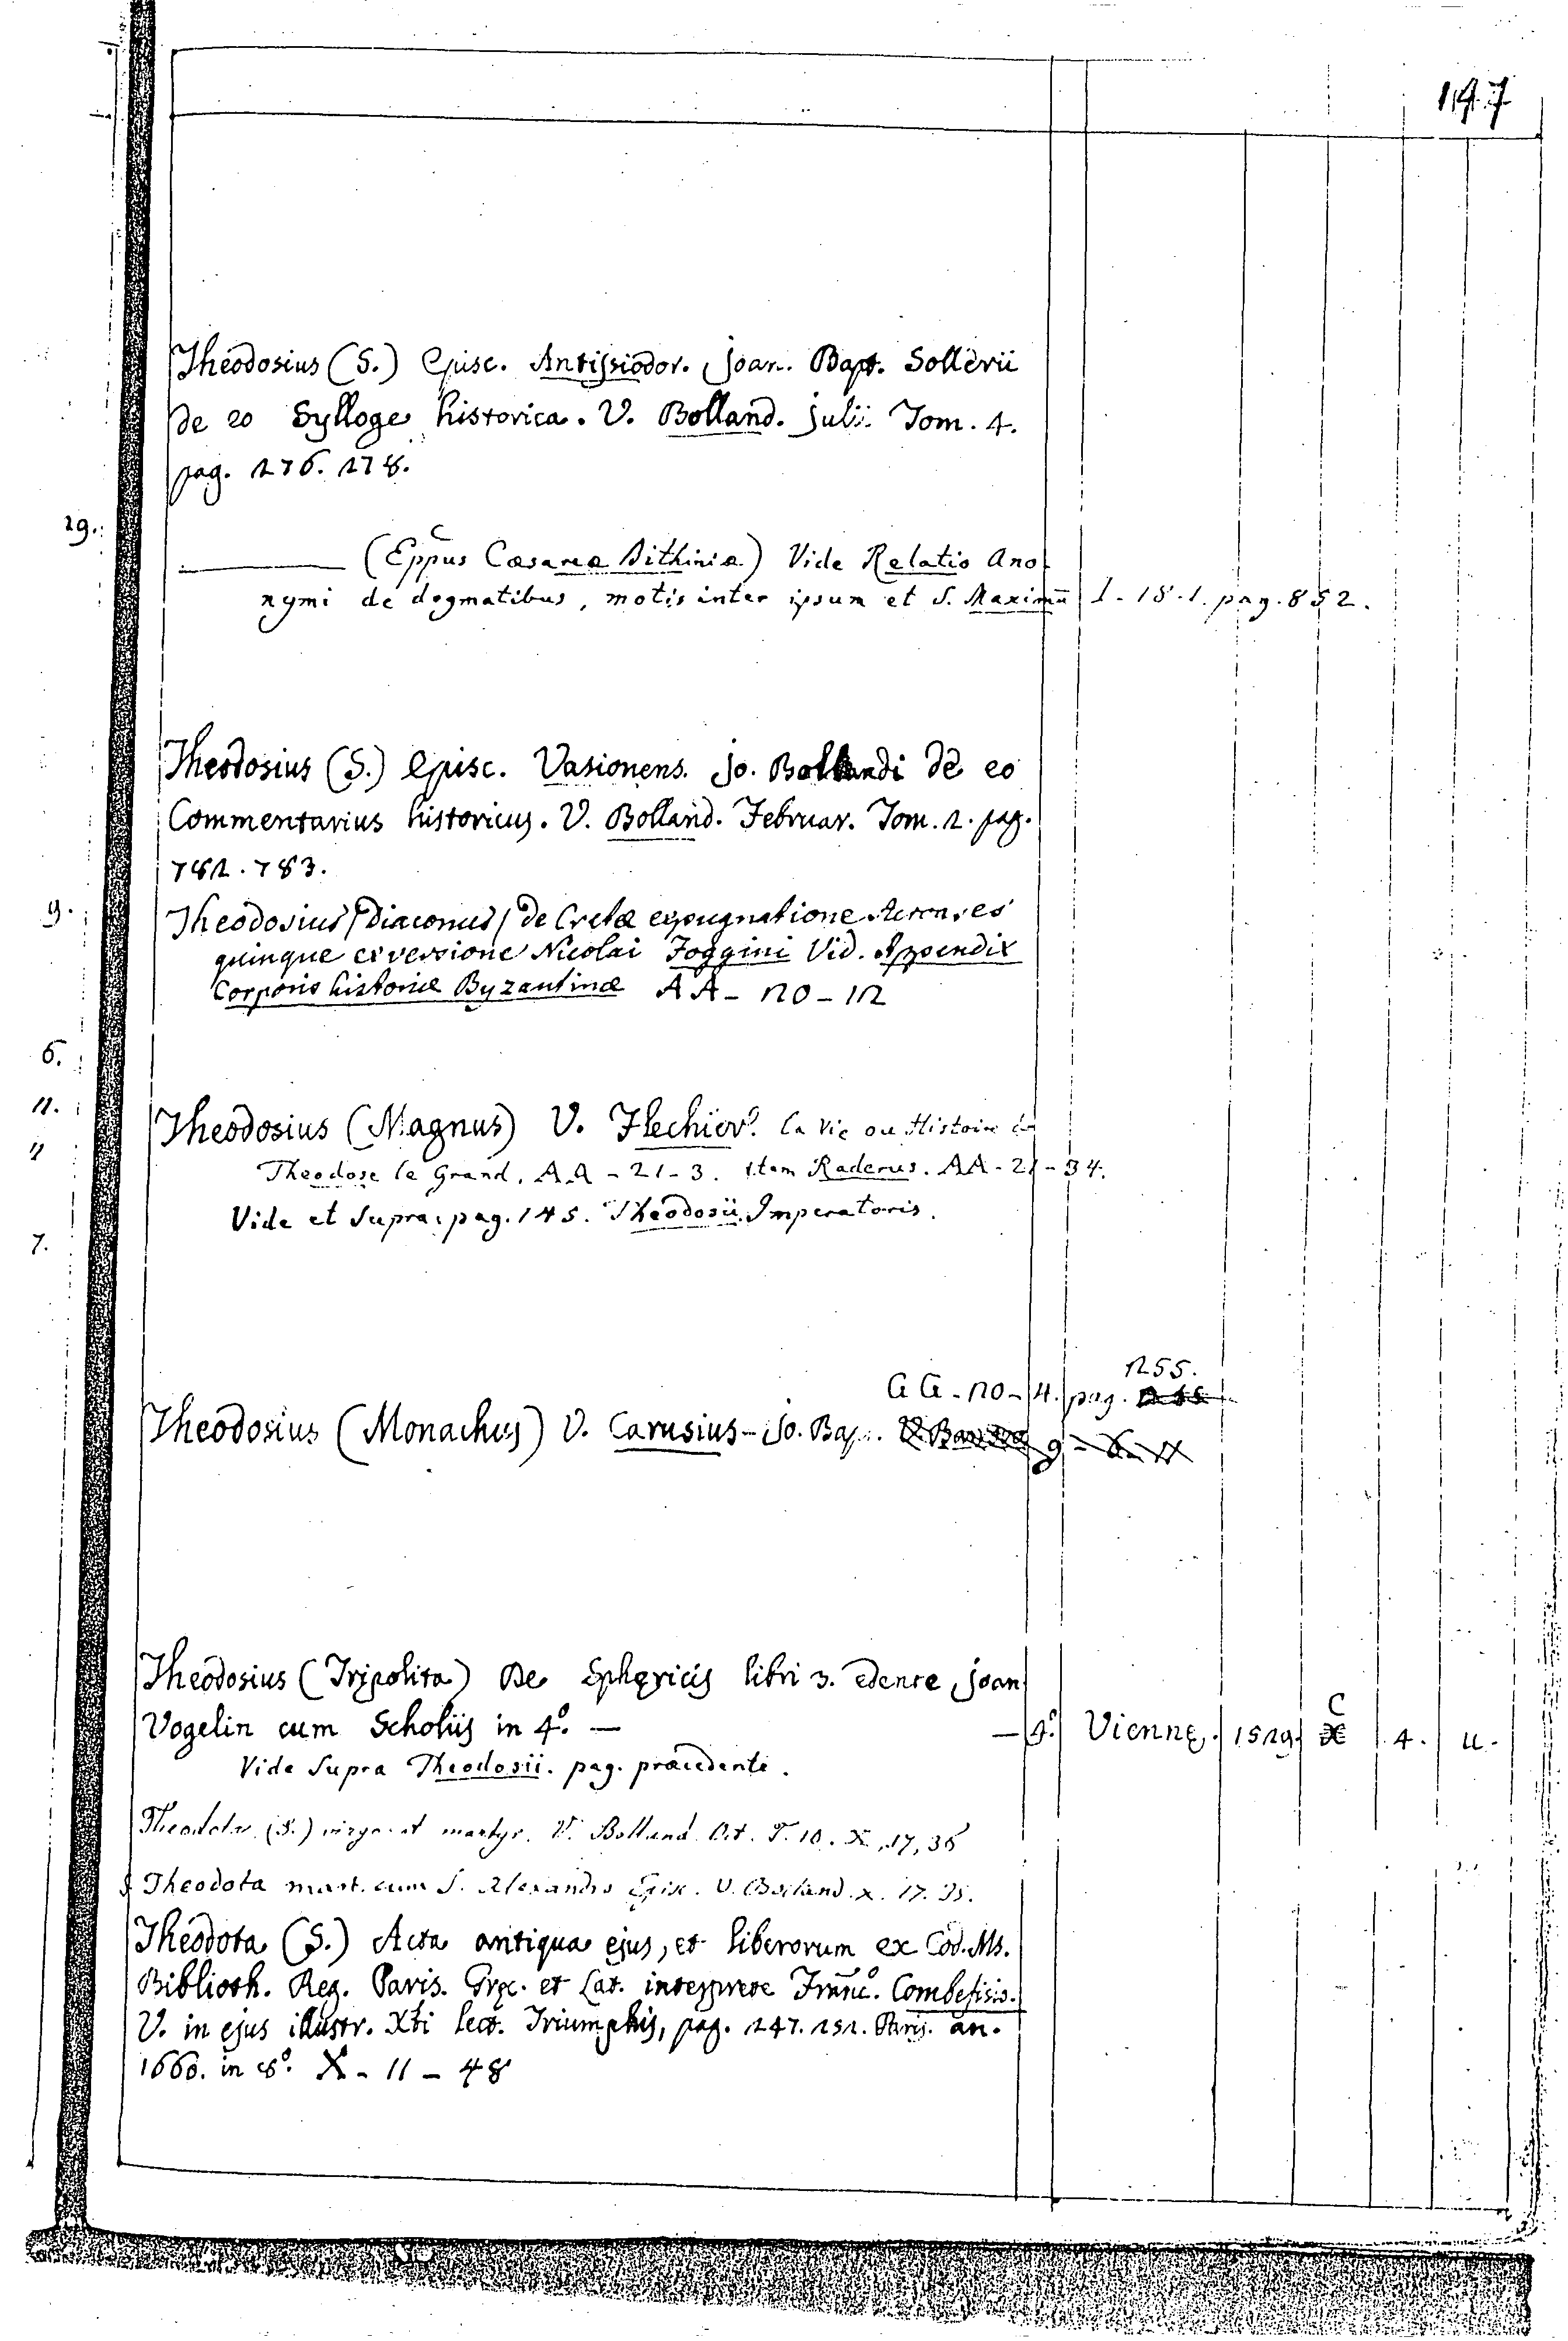 147
Theodosius (S.) Episc. Antissiodor. Joan. Bapt. Sollerii
de eo Sylloge historica. V. Bolland. Julii Tom. 4.
pag. 276. 278.
29.
——— (Eppus Cæsareæ Bithiniæ) Vide Relatio Ano-
nymi de dogmatibus, motis inter ipsum et S. Maximū I-18-1. pag. 852.
Theodosius (S.) Episc. Vasionens. Jo. Bollandi de eo
Commentarius historicus. V. Bolland. Februar. Tom. 2. pag.
782. 783.
9.
Theodosius (Diaconus) de Cretæ expugnatione Acroases
quinque ex versione Nicolai Foggini Vid. Appendix
Corporis historiæ Byzantinæ AA-20-12
6.
11.
Theodosius (Magnus) V. Flechier. La Vie ou Histoire de
11
Theodose le Grand. AA-21-3. Item Raderus. AA-21-34.
Vide et Supra pag. 145. Theodosii Imperatoris.
7.
GG-20-4. pag. 255.
Theodosius (Monachus) V. Carusius-Jo. Bap.
Theodosius (Tripolita) De Sphęricis libri 3. edente Joan
Vogelin cum Scholiis in 4º. — — 4º. Viennę. 1529. C 4. 11.
Vide Supra Theodosii. pag. præcedente.
Theodota (S.) virgo et martyr. V. Bolland. Oct. T. 10. X, 17, 36
S. Theodota mart. cum S. Alexandro Episc. V. Bolland. X. 17. 35.
Theodota (S.) Acta antiqua ejus, et liberorum ex Cod. Ms.
Biblioth. Reg. Paris. Gręc. et Lat. interprete Franc. Combefisio.
V. in ejus illustr. Xti lect. Triumphis, pag. 247. 252. Paris. an.
1660. in 8º. X-11-48